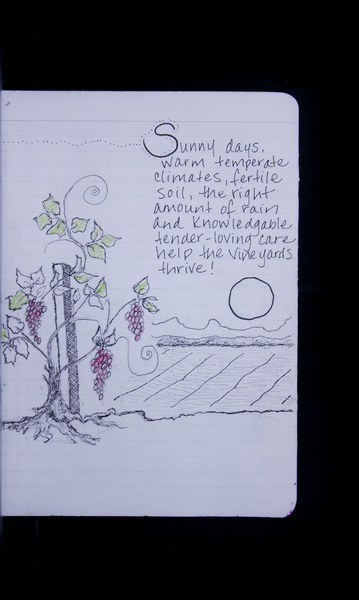 Sunny days,
warm temperate
climates, fertile
soil, the right
amount of rain
and knowledgable
tender-loving care
help the vineyards
thrive!